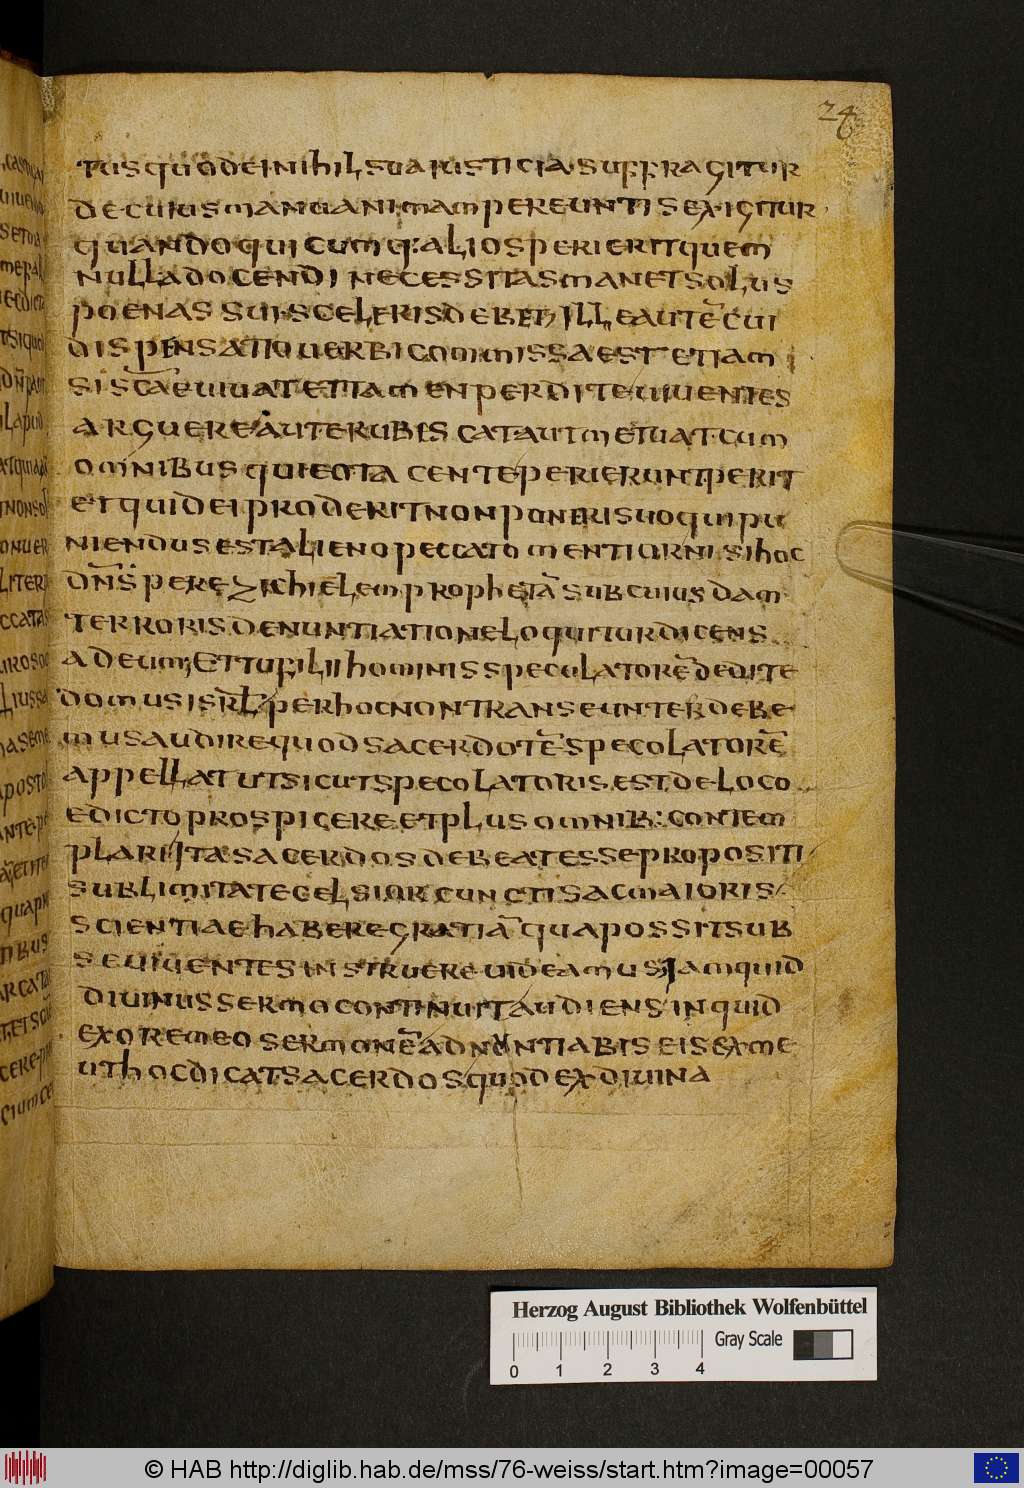 26
tus quodei nihil sua iusticia suffragitur
de cuius manu animam pereuntis exigitur
quando qui cumq: alios perierit quem
nulla docendi necessitas manet solus
poenas sui sceleris debet, ille autē cui
dispensatio uerbi commissa est etiam
si scae uiuat et tamen perdite uiuentes
arguere aut erubescat aut metuat cum
omnibus qui eo tacente perierunt perit
et quid ei proderit non poneri suo qui pu
niendus est alieno peccato mentiur nisi hoc
dns per ezichielem prophetā sub cuiusdam
terroris denuntiatione loquitur dicens
ad eum; Et tu fili hominis specolatorē dedi te
domus isrl per hoc non transeunter debe
mus audire quod sacerdotē specolatorē
appellat ut sicut specolatoris est de loco
edicto prospicere et plus omnib: contem
plari ita sacerdos debeat esse propositi
sublimitate celsior cunctis ac maioris
scientiae habere gratiā qua possit sub
se uiuentes instruere uideamus iam quid
diuinus sermo continuit audiens inquid
ex ore meo sermonē adnuntiabis eis ex me
ut hoc dicat sacerdos quod ex diuina
Herzog August Bibliothek Wolfenbüttel
Gray Scale
0 1 2 3 4
© HAB http://diglib.hab.de/mss/76-weiss/start.htm?image=00057